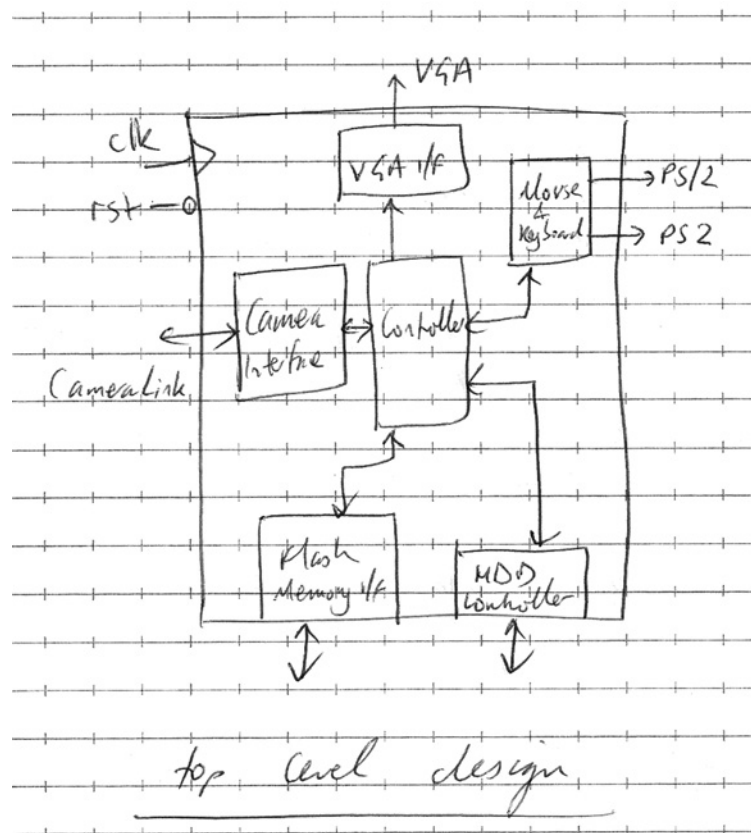 VGA
clk
VGA i/f
rst
Mouse
&
Keyboard
PS/2
PS2
Camera
Interface
Controller
CameraLink
Flash
Memory i/f
HDD
Controller
top level design